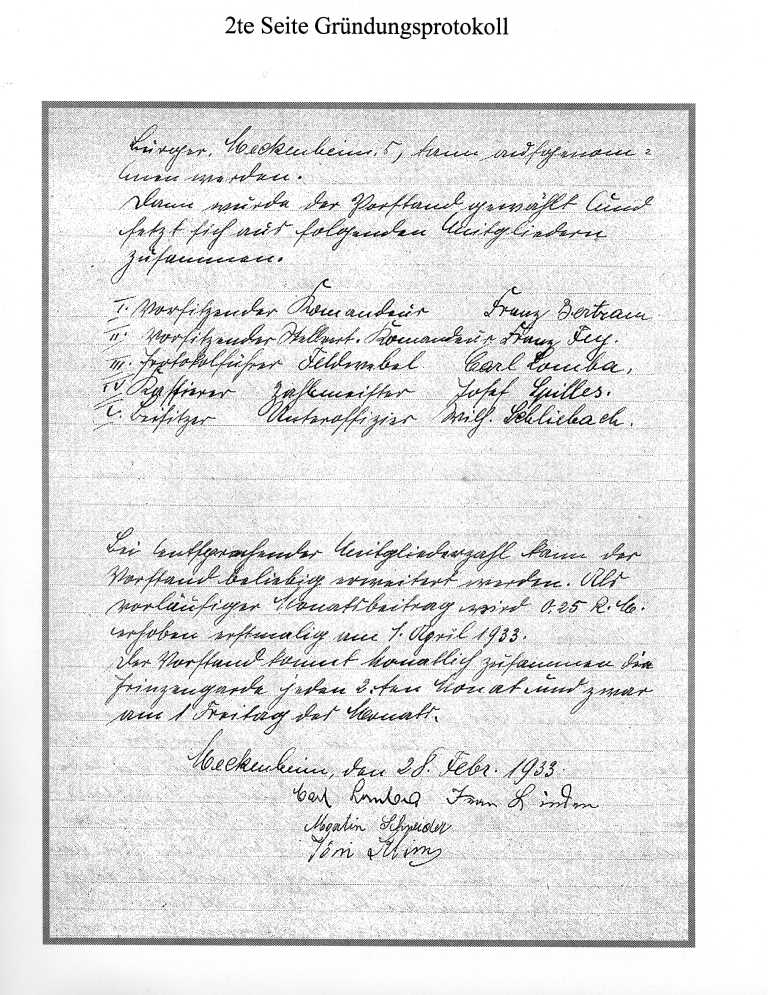 2te Seite Gründungsprotokoll
Bürger. Meckenheim's, kann aufgenom=
men werden.
Dann wurde der Vorstand gewählt und
setzt sich aus folgenden Mitgliedern
zusammen.
I. Vorsitzender Komandeur Franz Bertram
II. Vorsitzender Stellvert. Komandeur Franz Fey.
III. Protokolführer Feldwebel Carl Lomba,
IV Kassierer Zahlmeister Josef Spilles.
V. Beisitzer Unteroffizier Wilh. Schliebach.
Bei entsprechender Mitgliederzahl kann der
Vorstand beliebig erweitert werden. Als
vorläufiger Monatsbeitrag wird 0.25 R.M.
erhoben erstmalig am 1. April 1933.
Der Vorstand kommt monatlich zusammen die
Prinzengarde jeden 2.ten Monat und zwar
am 1 Freitag des Monats.
Meckenheim, den 28. Febr. 1933.
Carl Lomba
Schneider